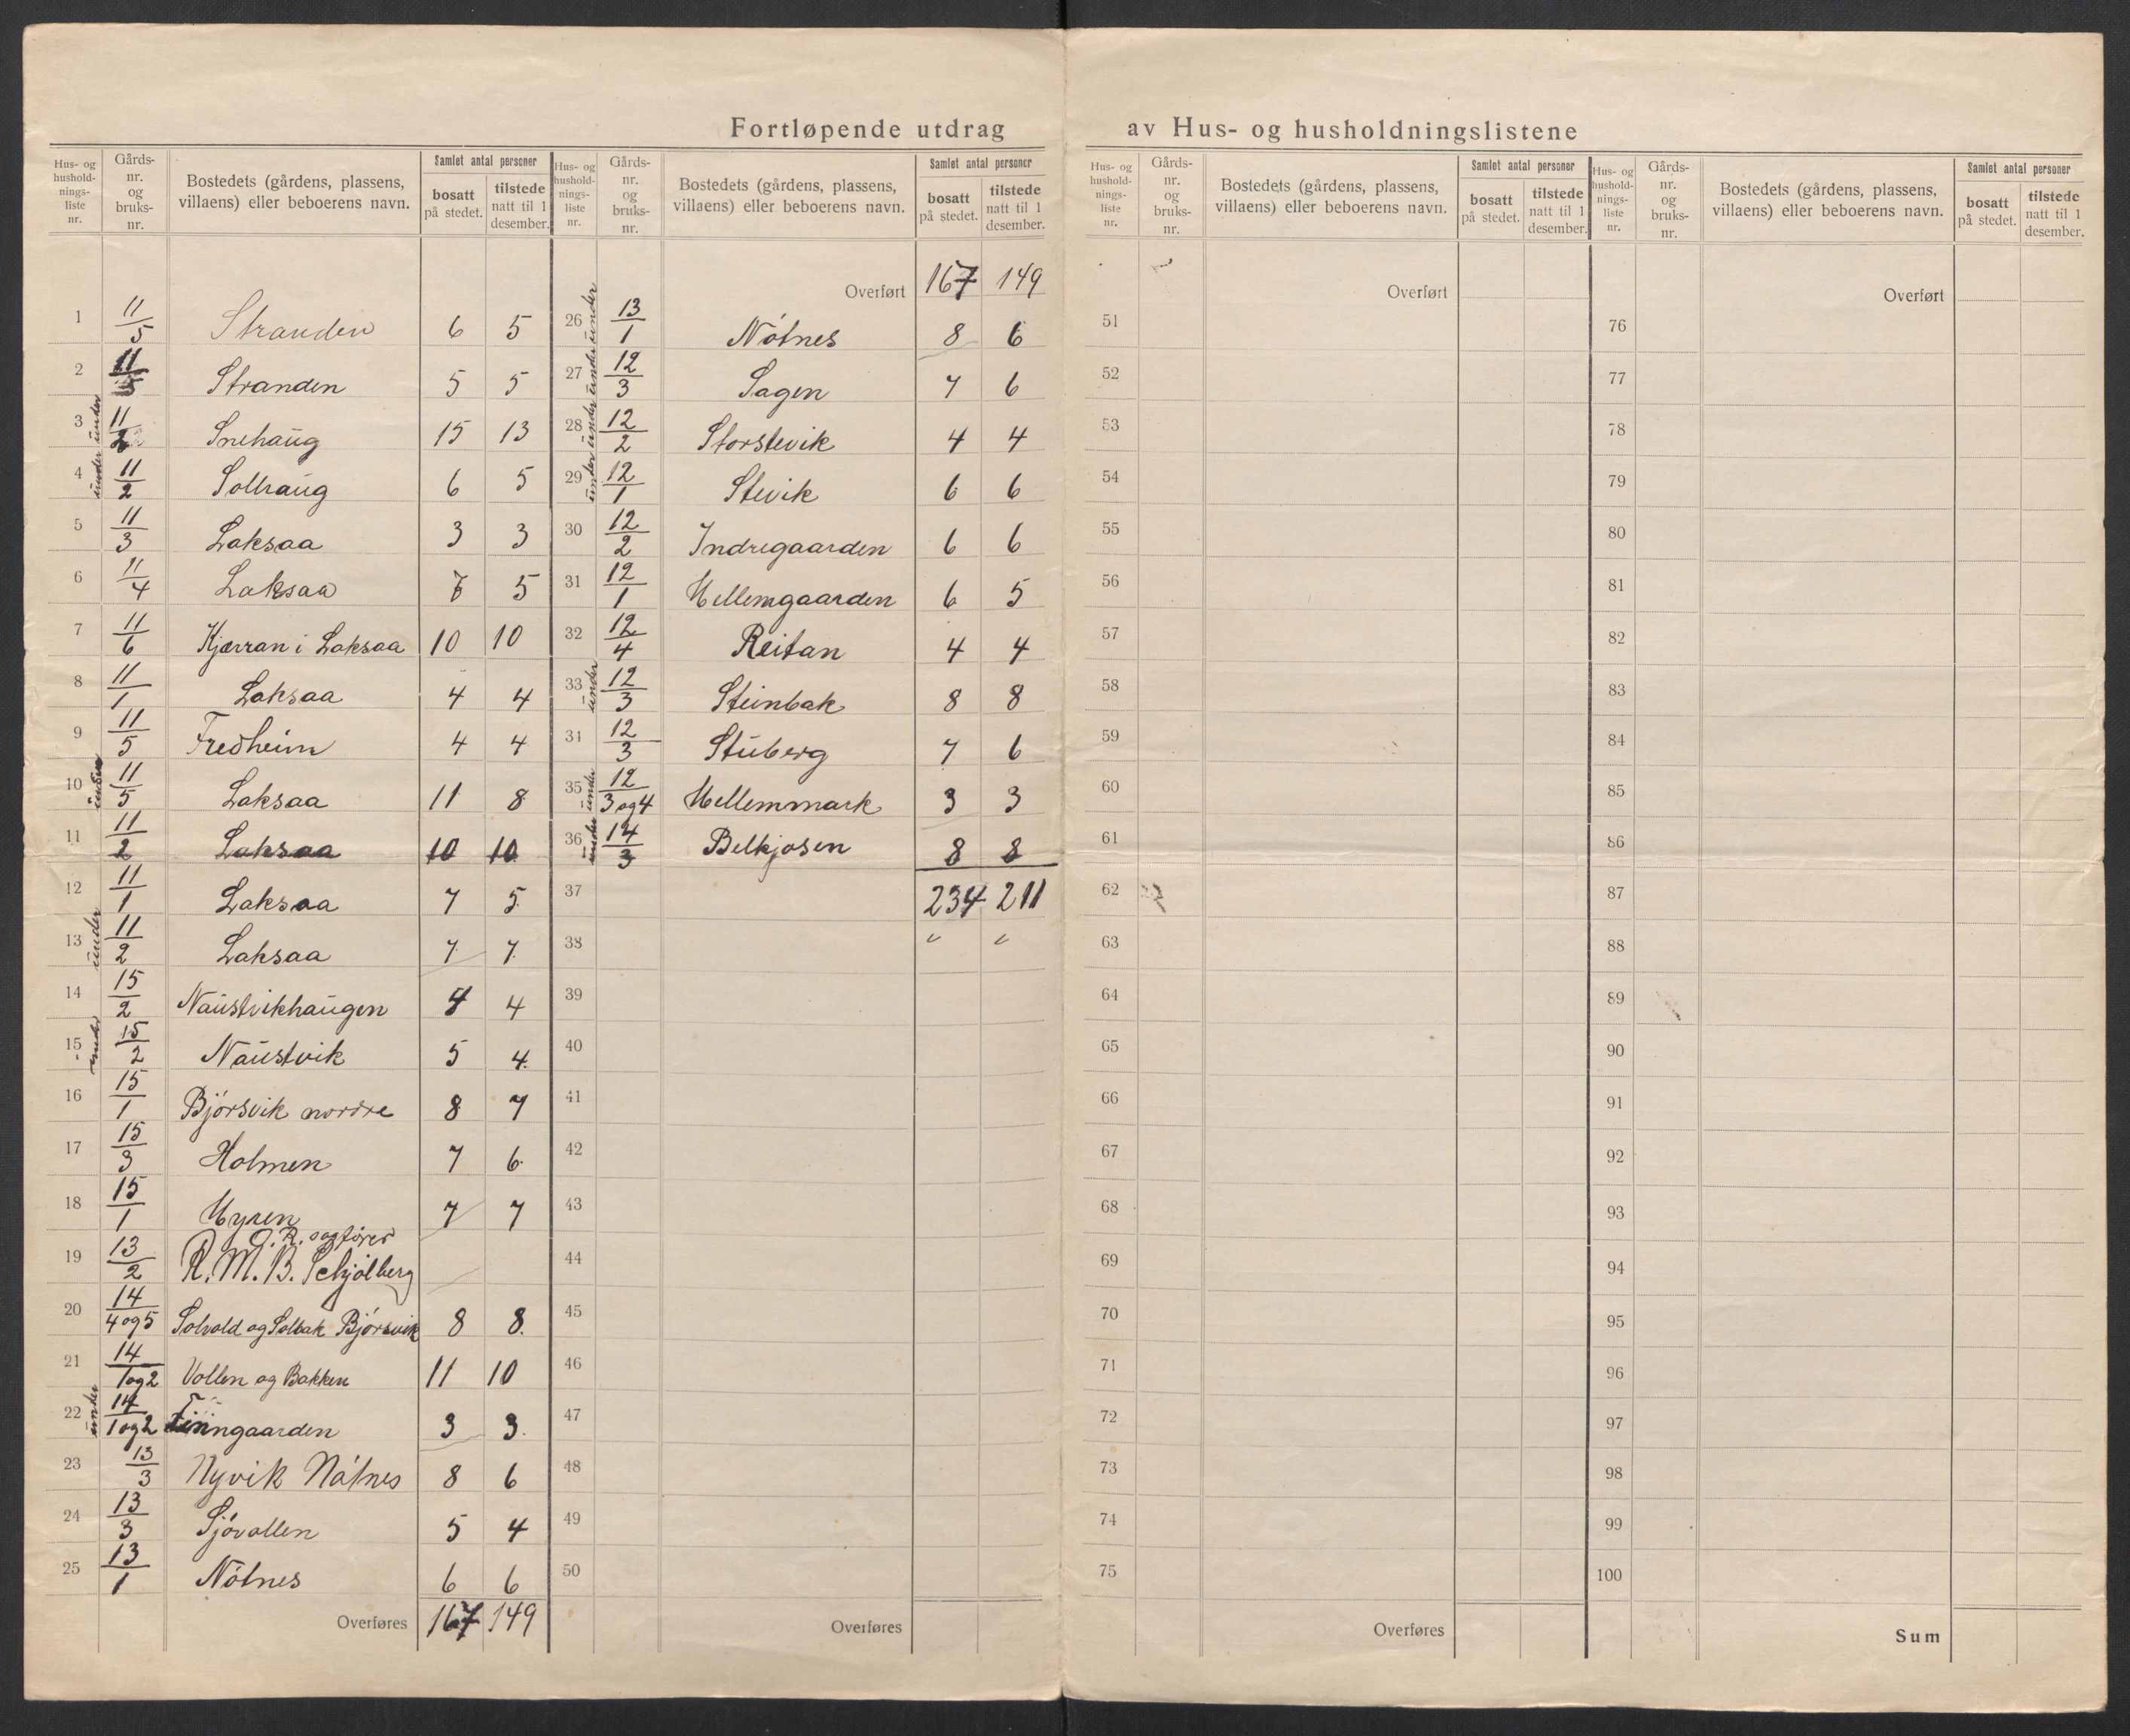 Fortløpende utdrag av Hus- og husholdningslistene
Hus- og husholdnings-liste nr. | Gårds-nr. og bruks-nr. | Bostedets (gårdens, plassens, villaens) eller beboerens navn. | Samlet antal personer bosatt på stedet. | tilstede natt til 1 desember.
1 11/5 Stranden 6 5
2 11/5 Stranden 5 5
3 under 11/2 Snehaug 15 13
4 under 11/2 Solhaug 6 5
5 11/3 Laksaa 3 3
6 11/4 Laksaa 5
7 11/6 Kjærran i Laksaa 10 10
8 11/1 Laksaa 4 4
9 11/5 Fredheim 4 4
10 under 11/5 Laksaa 11 8
11 11/2 Laksaa 10 10
12 11/1 Laksaa 7 5
13 under 11/2 Laksaa 7 7
14 15/2 Naustvikhaugen 4 4
15 under 15/2 Naustvik 5 4
16 15/1 Bjørsvik nordre 8 7
17 15/3 Holmen 7 6
18 15/1 Myren 7 7
O.R. sagfører
19 13/2 R. M. B. Schjølberg
20 14/4 og 5 Solvold og Solbak Bjørsvik 8 8
21 14/1 og 2 Vollen og Bakken 11 10
22 under 14/1 og 2 Finngaarden 3 3
23 13/3 Nyvik Nøtnes 8 6
24 13/3 Sjøvollen 5 4
25 13/1 Nøtnes 6 6
Overføres 167 149
Hus- og husholdnings-liste nr. | Gårds-nr. og bruks-nr. | Bostedets (gårdens, plassens, villaens) eller beboerens navn. | Samlet antal personer bosatt på stedet. | tilstede natt til 1 desember.
Overført 167 149
26 under 13/1 Nøtnes 8 6
27 under 12/3 Sagen 7 6
28 under 12/2 Storstevik 4 4
29 under 12/1 Stevik 6 6
30 12/2 Indregaarden 6 6
31 12/1 Mellemgaarden 6 5
32 12/4 Reitan 4 4
33 under 12/3 Steinbak 8 8
34 12/3 Stuberg 7 6
35 under 12/3 og 4 Mellemmark 3 3
36 under 14/3 Belkjosen 8 8
37 234 211
38 " "
39
40
41
42
43
44
45
46
47
48
49
50
Overføres
Hus- og husholdnings-liste nr. | Gårds-nr. og bruks-nr. | Bostedets (gårdens, plassens, villaens) eller beboerens navn. | Samlet antal personer bosatt på stedet. | tilstede natt til 1 desember.
Overført
51
52
53
54
55
56
57
58
59
60
61
62
63
64
65
66
67
68
69
70
71
72
73
74
75
Overføres
Hus- og husholdnings-liste nr. | Gårds-nr. og bruks-nr. | Bostedets (gårdens, plassens, villaens) eller beboerens navn. | Samlet antal personer bosatt på stedet. | tilstede natt til 1 desember.
Overført
76
77
78
79
80
81
82
83
84
85
86
87
88
89
90
91
92
93
94
95
96
97
98
99
100
Sum